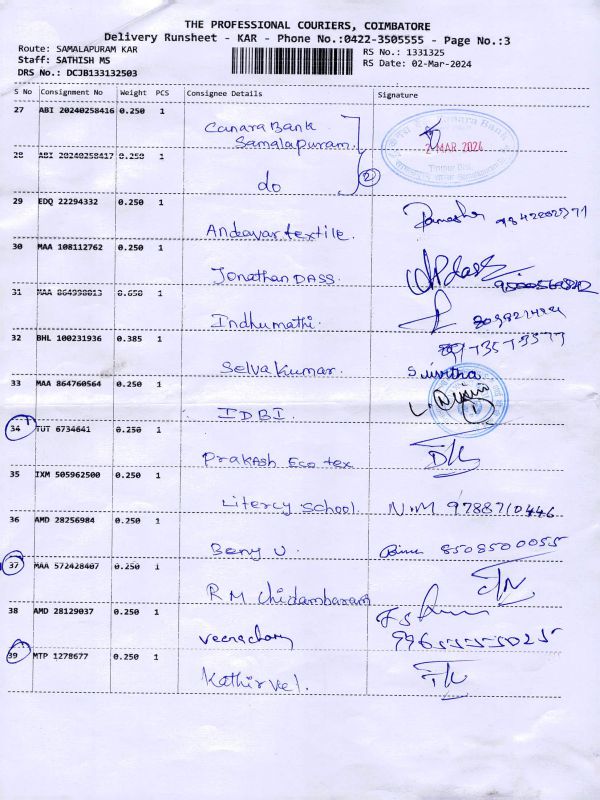 THE PROFESSIONAL COURIERS, COIMBATORE
Delivery Runsheet - KAR - Phone No.:0422-3505555 - Page No.:3
Route: SAMALAPURAM KAR
RS No.: 1331325
Staff: SATHISH MS
RS Date: 02-Mar-2024
DRS No.: DCJB133132503
S No Consignment No Weight PCS Consignee Details Signature
27 ABI 20240258416 0.250 1
Canara Bank
Samalapuram
2 MAR 2024
28 ABI 20240258417 0.250 1
do
2
29 EDQ 22294332 0.250 1
Andavar textile
30 MAA 108112762 0.250 1
Jonathan DASS
31 MAA 864998013 0.650 1
Indhumathi
32 BHL 100231936 0.385 1
Selvakumar
33 MAA 864760564 0.250 1
IDBI
34 TUT 6734641 0.250 1
Prakash Eco tex
35 IXM 505962500 1
Litercy School N.M 9788710446
36 AMD 28256984 0.250 1
Beny U 8508500055
37 MAA 572428407 0.250 1
R M Chidambaram
38 AMD 28129037 0.250 1
39 MTP 1278677 0.250 1
Kathirvel